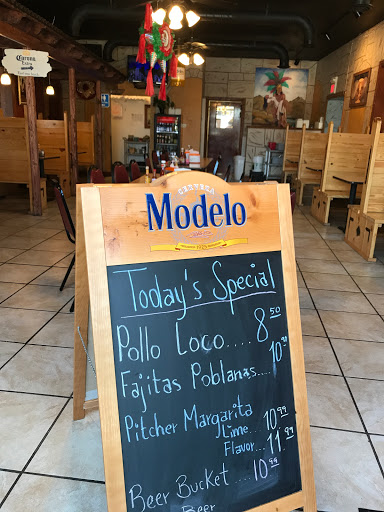 Corona
Extra
CERVEZA
Modelo
Today's Special
Pollo Loco.... 8.50
Fajitas Poblanas... 10.99
Pitcher Margarita
Lime.. 10.99
Flavor.. 11.99
Beer Bucket .... 10.99
Beer